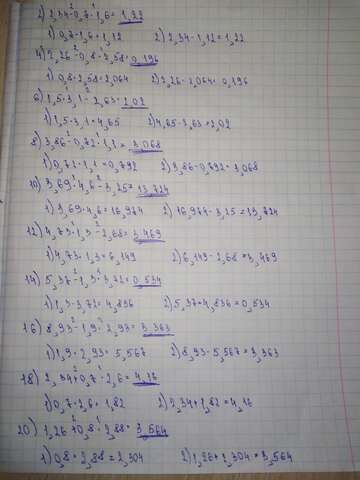 2) 2,34-0,7·1,6=1,22
1) 0,7·1,6=1,12 2) 2,34-1,12=1,22
4) 2,26-0,8·2,58=0,196
1) 0,8·2,58=2,064 2) 2,26-2,064=0,196
6) 1,5·3,1-2,63=2,02
1) 1,5·3,1=4,65 2) 4,65-2,63=2,02
8) 3,86-0,72·1,1=3,068
1) 0,72·1,1=0,792 2) 3,86-0,792=3,068
10) 3,69·4,6-3,25=13,724
1) 3,69·4,6=16,974 2) 16,974-3,25=13,724
12) 4,73·1,3-2,68=3,469
1) 4,73·1,3=6,149 2) 6,149-2,68=3,469
14) 5,37-1,3·3,72=0,534
1) 1,3·3,72=4,836 2) 5,37-4,836=0,534
16) 8,93-1,9·2,93=3,363
1) 1,9·2,93=5,567 2) 8,93-5,567=3,363
18) 2,34+0,7·2,6=4,16
1) 0,7·2,6=1,82 2) 2,34+1,82=4,16
20) 1,26+0,8·2,88=3,564
1) 0,8·2,88=2,304 2) 1,26+2,304=3,564